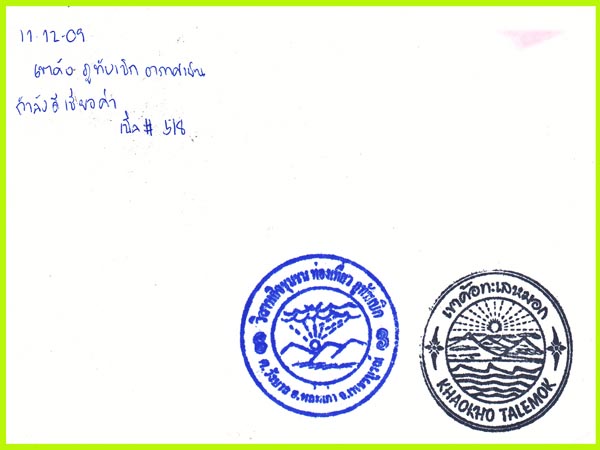 11-12-09
เขาค้อ ภูทับเบิก อากาศเย็น
กำลังดี เชียวค่ำ
เปิ้ล # 518
วิสาหกิจชุมชน ท่องเที่ยว ภูทับเบิก
ต.วังบาล อ.หล่มเก่า จ.เพชรบูรณ์
เขาค้อทะเลหมอก
KHAOKHO TALEMOK